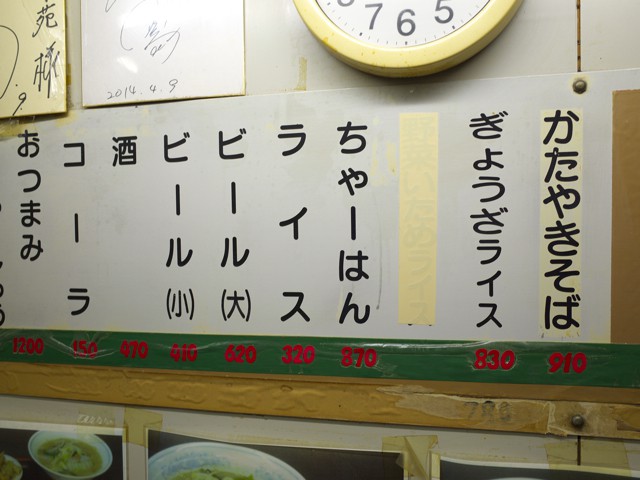 かたやきそば
910
ぎょうざライス
830
ちゃーはん
870
ライス
320
ビール(大)
620
ビール(小)
410
酒
470
コーラ
150
おつまみ
1200
苑様
9
2014.4.9
7 6 5